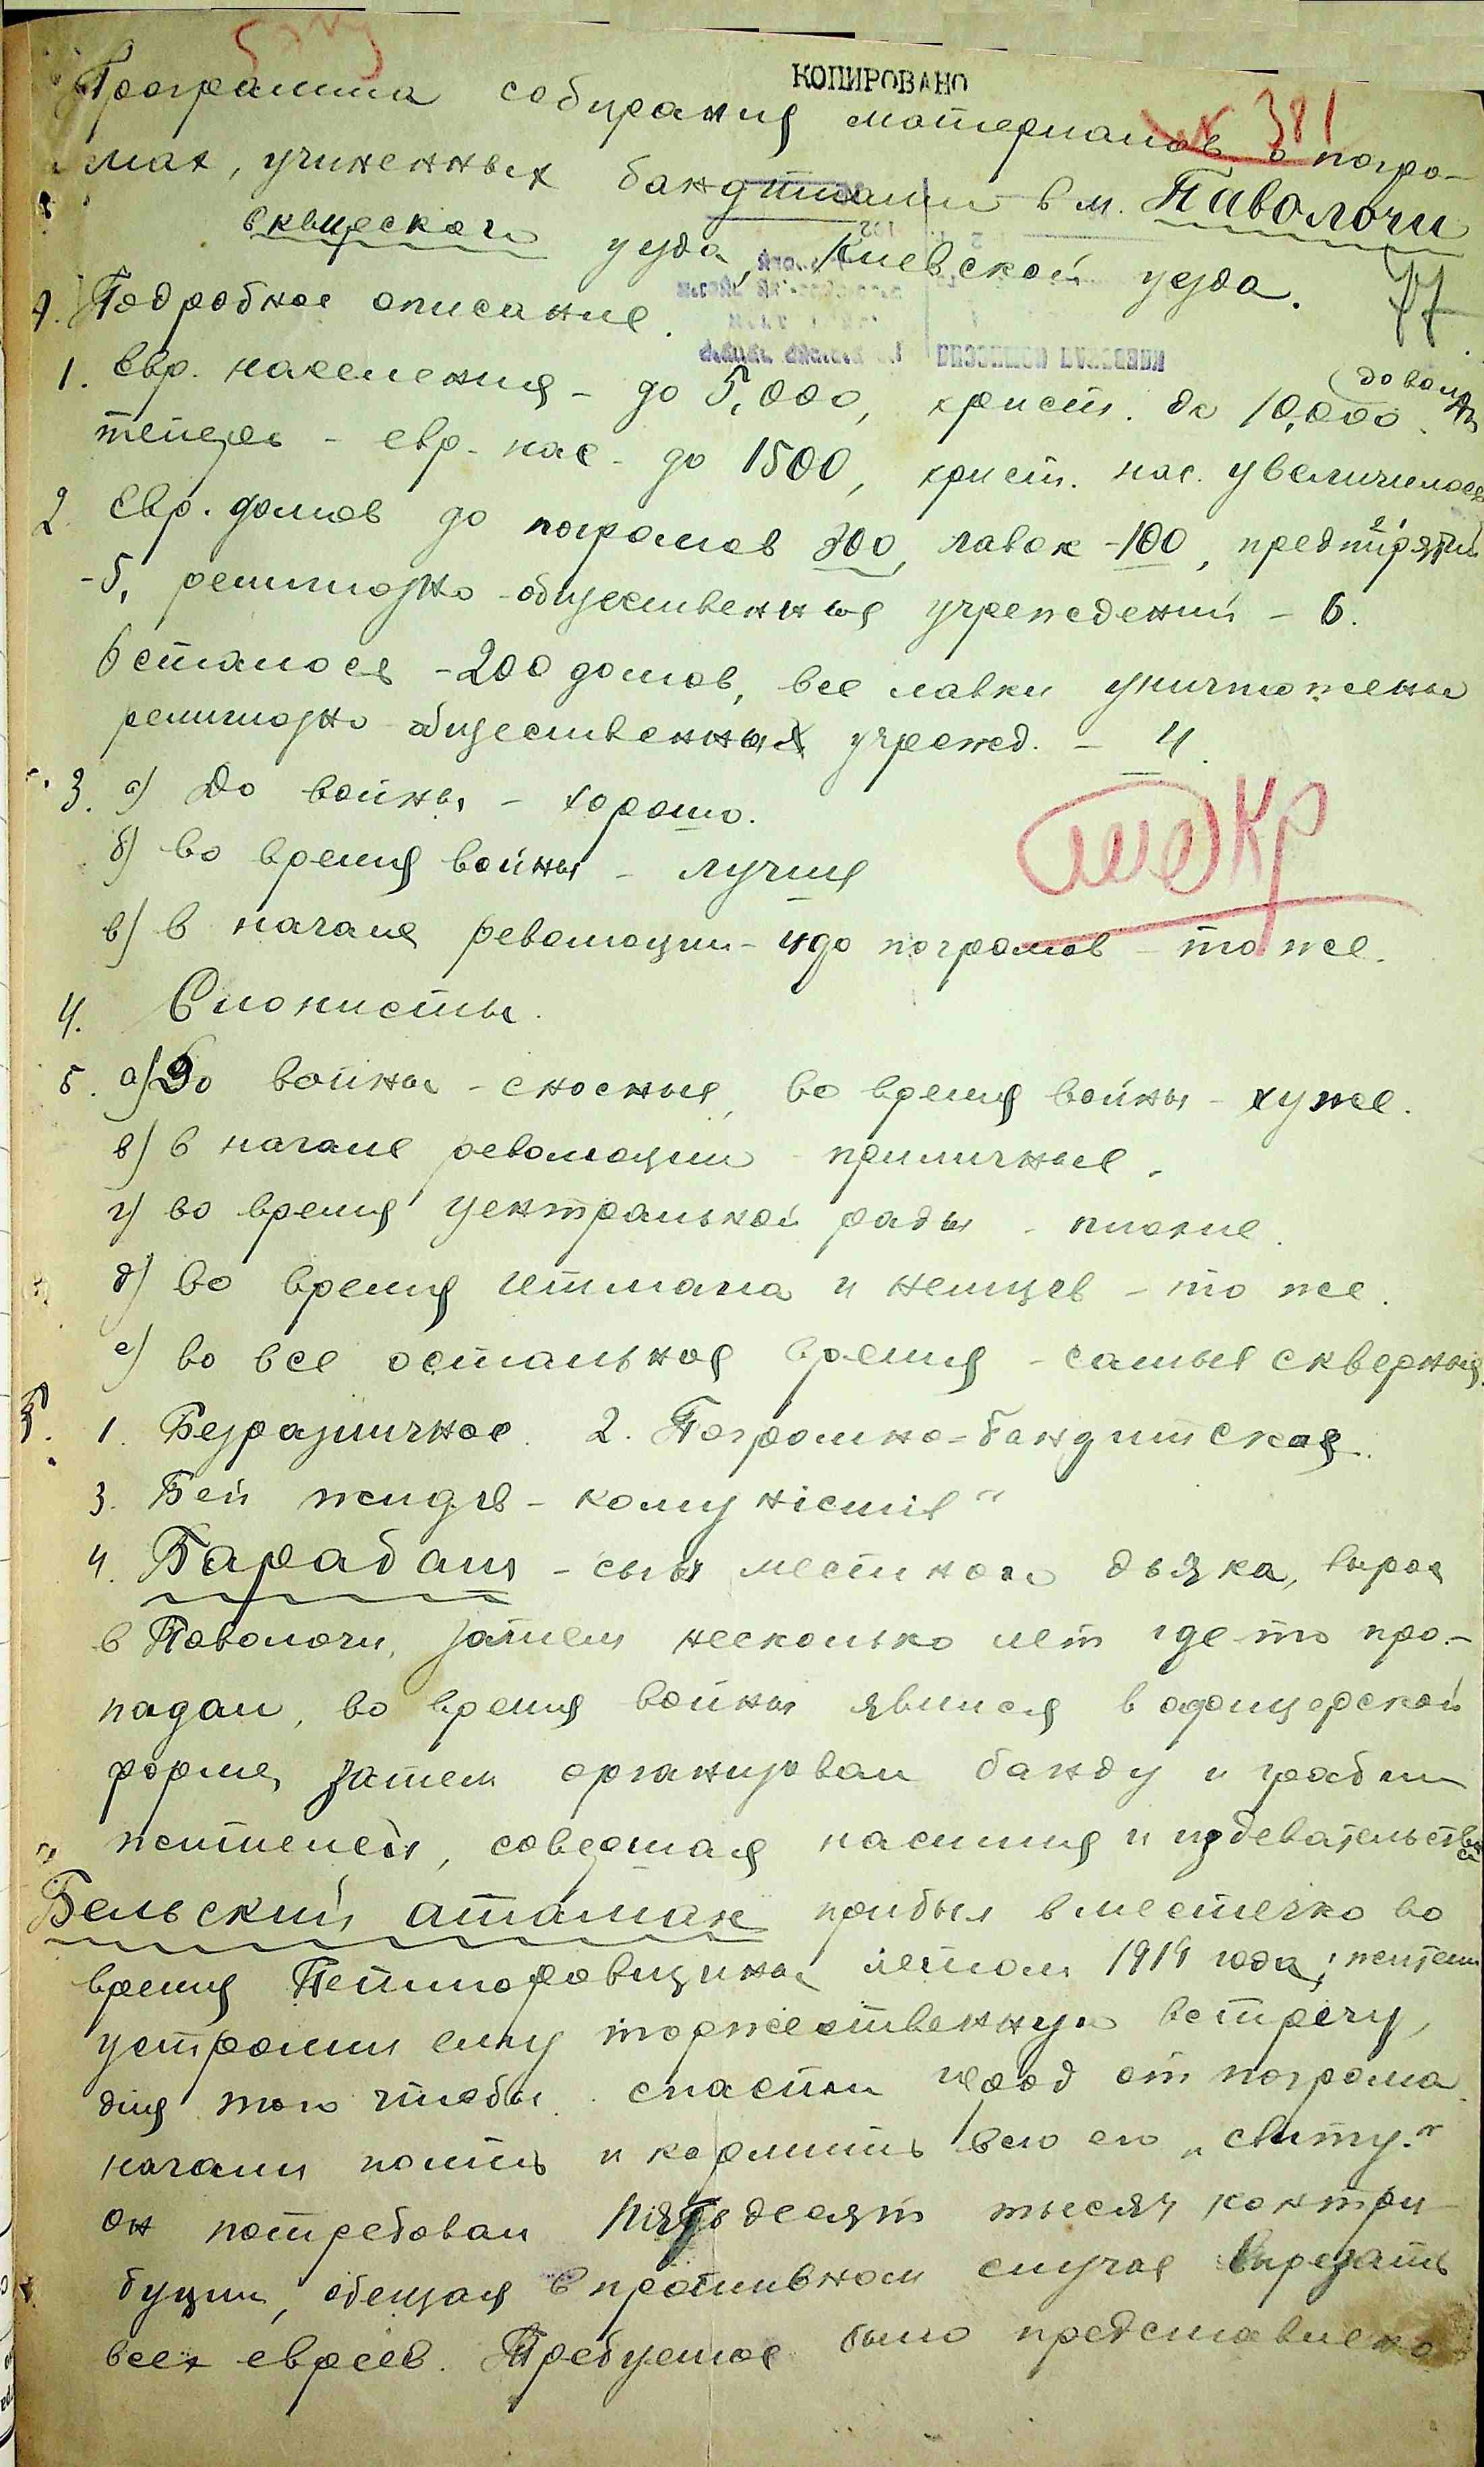 КОПИРОВАНО
№ 381
Программа собирания материалов о погро-
мах, учиненных бандитами в м. Паволочи
сквирского уезда, Киевской уезда.
77
А. Подробное описание.
1. Евр. населения - до 5,000, христ. до 10,000 (до войны)
теперь - евр. нас. до 1500, христ. нас. увеличилось
2. Евр. домов до погромов 300, лавок - 100, предприятий
- 5, религиозно-общественныя учреждений - 6.
Осталось - 200 домов, все лавки уничтожены
религиозно общественных учрежд. - 4.
3. а) До войны - хорошо.
б) во время войны - лучшия
в) в начале революции - и до погромов - то же.
4. Сионисты.
5. а) До войны - сносныя, во время войны - хуже.
в) в начале революции - приличные.
г) во время центральной рады - плохие.
д) во время гетмана и немцев - то же.
е) во все остальное время - самыя скверныя.
Б. 1. Безразличное. 2. Погромно-бандитская.
3. Бей жидів - комуністів"
4. Барабаш - сын местного дьяка, вырос
в Паволочи, затем несколько лет где то про-
падал, во время войны явился в офицерской
форме, затем организовал банду и грабил
жителей, совершая насилия и издевательства
Бельский атаман прибыл в местечко во
время Петлюровщины летом 1919 года; жители
устроили ему торжественную встречу,
для того чтобы спасти город от погрома.
начали поить и кормить всю его „свиту."
он потребовал пятьдесят тысяч контри-
буции, обещая в противном случае вырезать
всех евреев. Требуемое было представлено